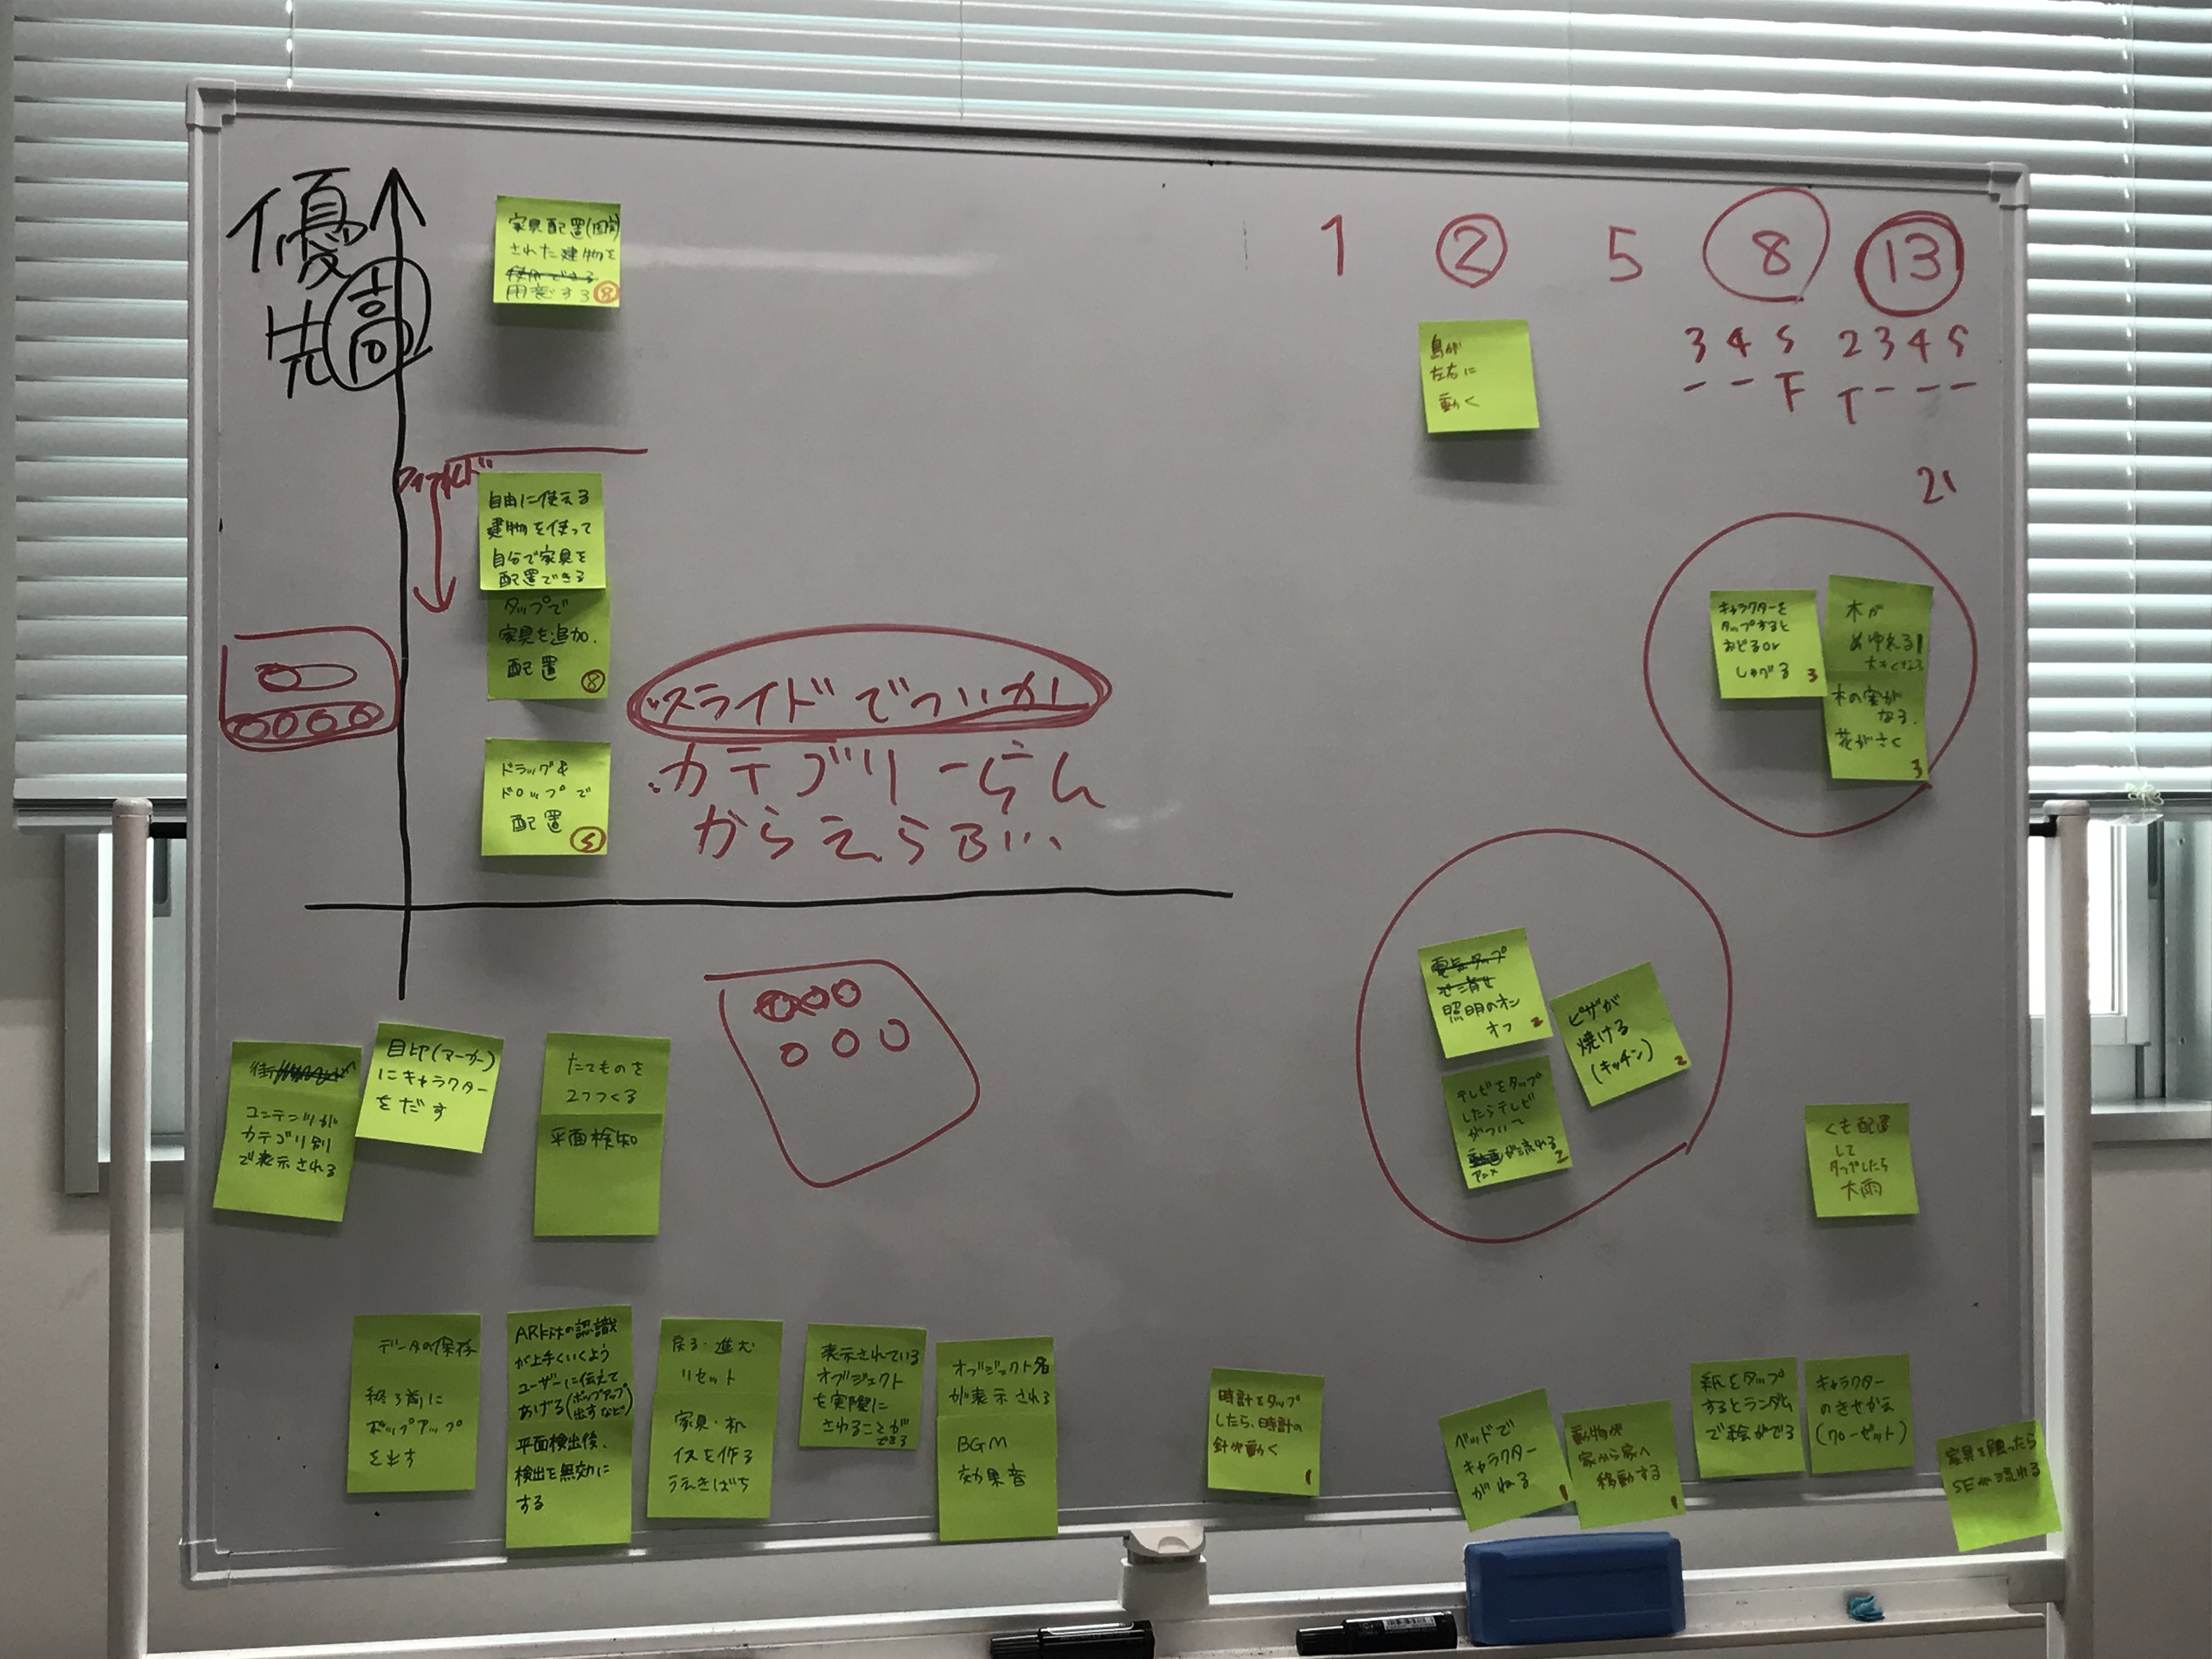 優
先
高
家具配置(固定)
された建物を
用意する ⑧
1 ② 5 ⑧ ⑬
3 4 5 2 3 4 5
- - T T - - -
21
鳥が
左右に
動く
自由に使える
建物を使って
自分で家具を
配置できる
タップで
家具を追加.
配置
⑧
ドラッグ&
ドロップで
配置
⑤
スライドでついか
カテゴリーらん
からえらぶ...
キャラクターを
タップすると
おどるor
しゃべる 3
木が
ゆれる
大きくなる
木の実が
なる.
花がさく
3
照明のオン
オフ 2
ピザが
焼ける
(キッチン)
2
テレビをタップ
したらテレビ
がついて
動画が流れる
アニメ 2
街
コンテンツが
カテゴリ別
で表示される
目印(マーカー)
にキャラクター
をだす
たてものを
2つつくる
平面検知
くも配置
して
タップしたら
大雨
データの保存
終る前に
ポップアップ
を出す
ARkitの認識
が上手くいくよう
ユーザーに伝えて
あげる(ポップアップ
出すなど)
平面検出後、
検出を無効に
する
戻る・進む
リセット
家具・机
イスを作る
うえきばち
表示されている
オブジェクト
を実際に
さわることが
できる
オブジェクト名
が表示される
BGM
効果音
時計をタップ
したら、時計の
針が動く
1
ベッドで
キャラクター
がねる
1
動物が
家から家へ
移動する
1
紙をタップ
するとランダム
で絵がでる
キャラクター
のきせかえ
(クローゼット)
家具を触ったら
SEが流れる